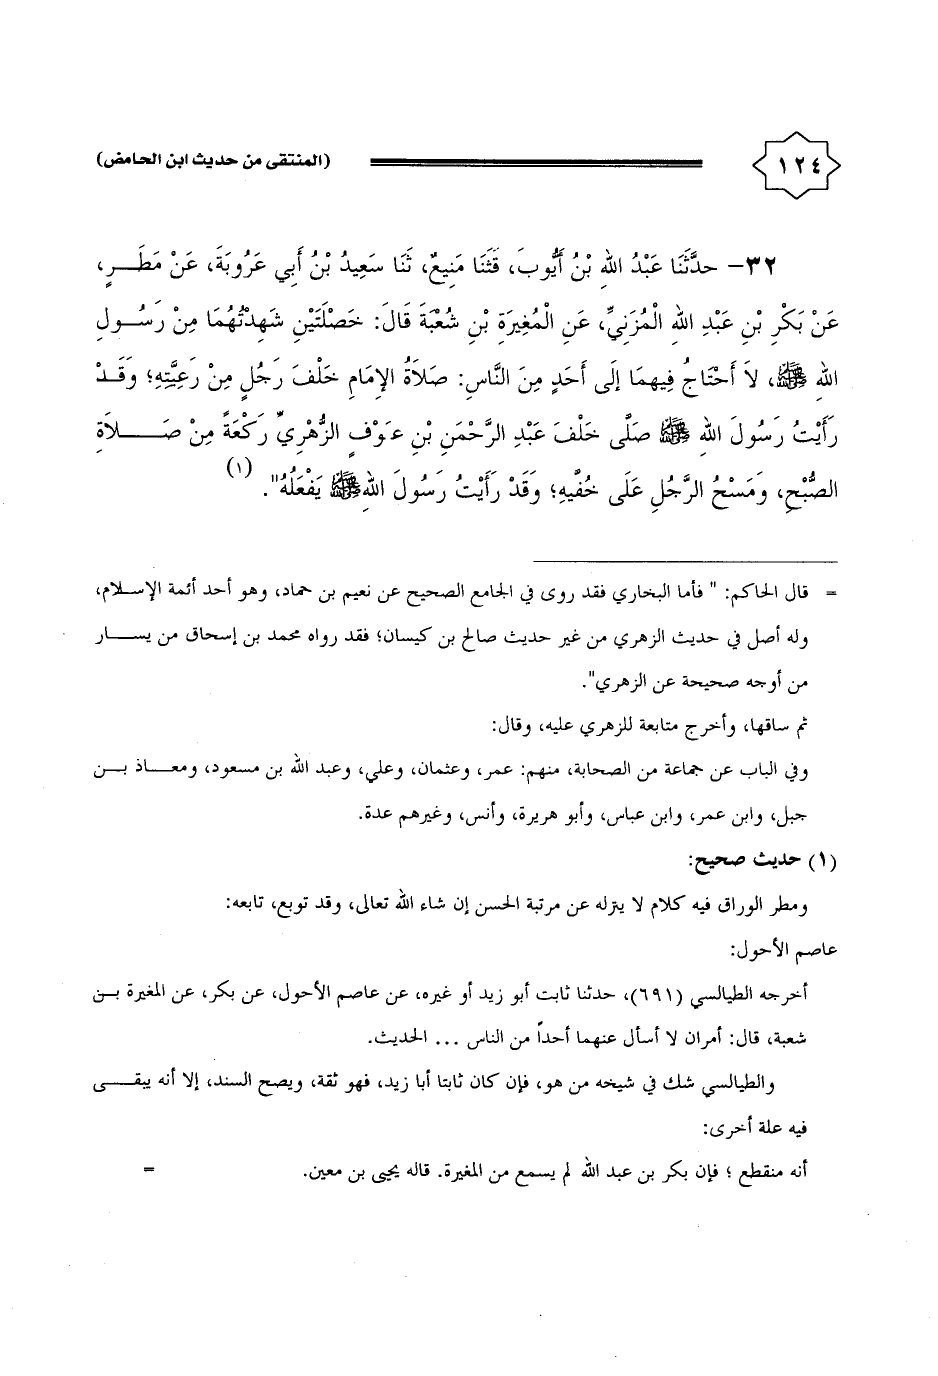 ١٢٤ (المنتقى من حديث ابن الحامض)
٣٢- حدَّثَنَا عَبْدُ اللهِ بْنُ أَيُّوبَ، قَثَنَا مَنِيعٌ، ثَنَا سَعِيدُ بْنُ أَبِي عَرُوبَةَ، عَنْ مَطَـــرٍ،
عَنْ بَكْرِ بْنِ عَبْدِ اللهِ الْمُزَنِيِّ، عَنِ الْمُغِيرَةِ بْنِ شُعْبَةَ قَالَ: خَصْلَتَيْنِ شَهِدْتُهُمَا مِنْ رَسُـــولِ
اللهِ ﷺ، لاَ أَحْتَاجُ فِيهِمَا إِلَى أَحَدٍ مِنَ النَّاسِ: صَلاَةُ الإِمَامِ خَلْفَ رَجُلٍ مِنْ رَعِيَّتِهِ؛ وَقَـــدْ
رَأَيْتُ رَسُولَ اللهِ ﷺ صَلَّى خَلْفَ عَبْدِ الرَّحْمَنِ بْنِ عَوْفٍ الزُّهْرِيِّ رَكْعَةً مِنْ صَـــلاَةِ
الصُّبْحِ، وَمَسْحُ الرَّجُلِ عَلَى خُفَّيْهِ؛ وَقَدْ رَأَيْتُ رَسُولَ اللهِ ﷺ يَفْعَلُهُ". (١)
= قال الحاكم: " فأما البخاري فقد روى في الجامع الصحيح عن نعيم بن حماد، وهو أحد أئمة الإسـلام،
وله أصل في حديث الزهري من غير حديث صالح بن كيسان؛ فقد رواه محمد بن إسحاق من يســـار
من أوجه صحيحة عن الزهري".
ثم ساقها، وأخرج متابعة للزهري عليه، وقال:
وفي الباب عن جماعة من الصحابة، منهم: عمر، وعثمان، وعلي، وعبد الله بن مسعود، ومعـــاذ بـــن
جبل، وابن عمر، وابن عباس، وأبو هريرة، وأنس، وغيرهم عدة.
(١) حديث صحيح:
ومطر الوراق فيه كلام لا ينزله عن مرتبة الحسن إن شاء الله تعالى، وقد توبع، تابعه:
عاصم الأحول:
أخرجه الطيالسي (٦٩١)، حدثنا ثابت أبو زيد أو غيره، عن عاصم الأحول، عن بكر، عن المغيرة بـــن
شعبة، قال: أمران لا أسأل عنهما أحداً من الناس ... الحديث.
والطيالسي شك في شيخه من هو، فإن كان ثابتا أبا زيد، فهو ثقة، ويصح السند، إلا أنه يبقـــى
فيه علة أخرى:
أنه منقطع ؛ فإن بكر بن عبد الله لم يسمع من المغيرة. قاله يحيى بن معين. =